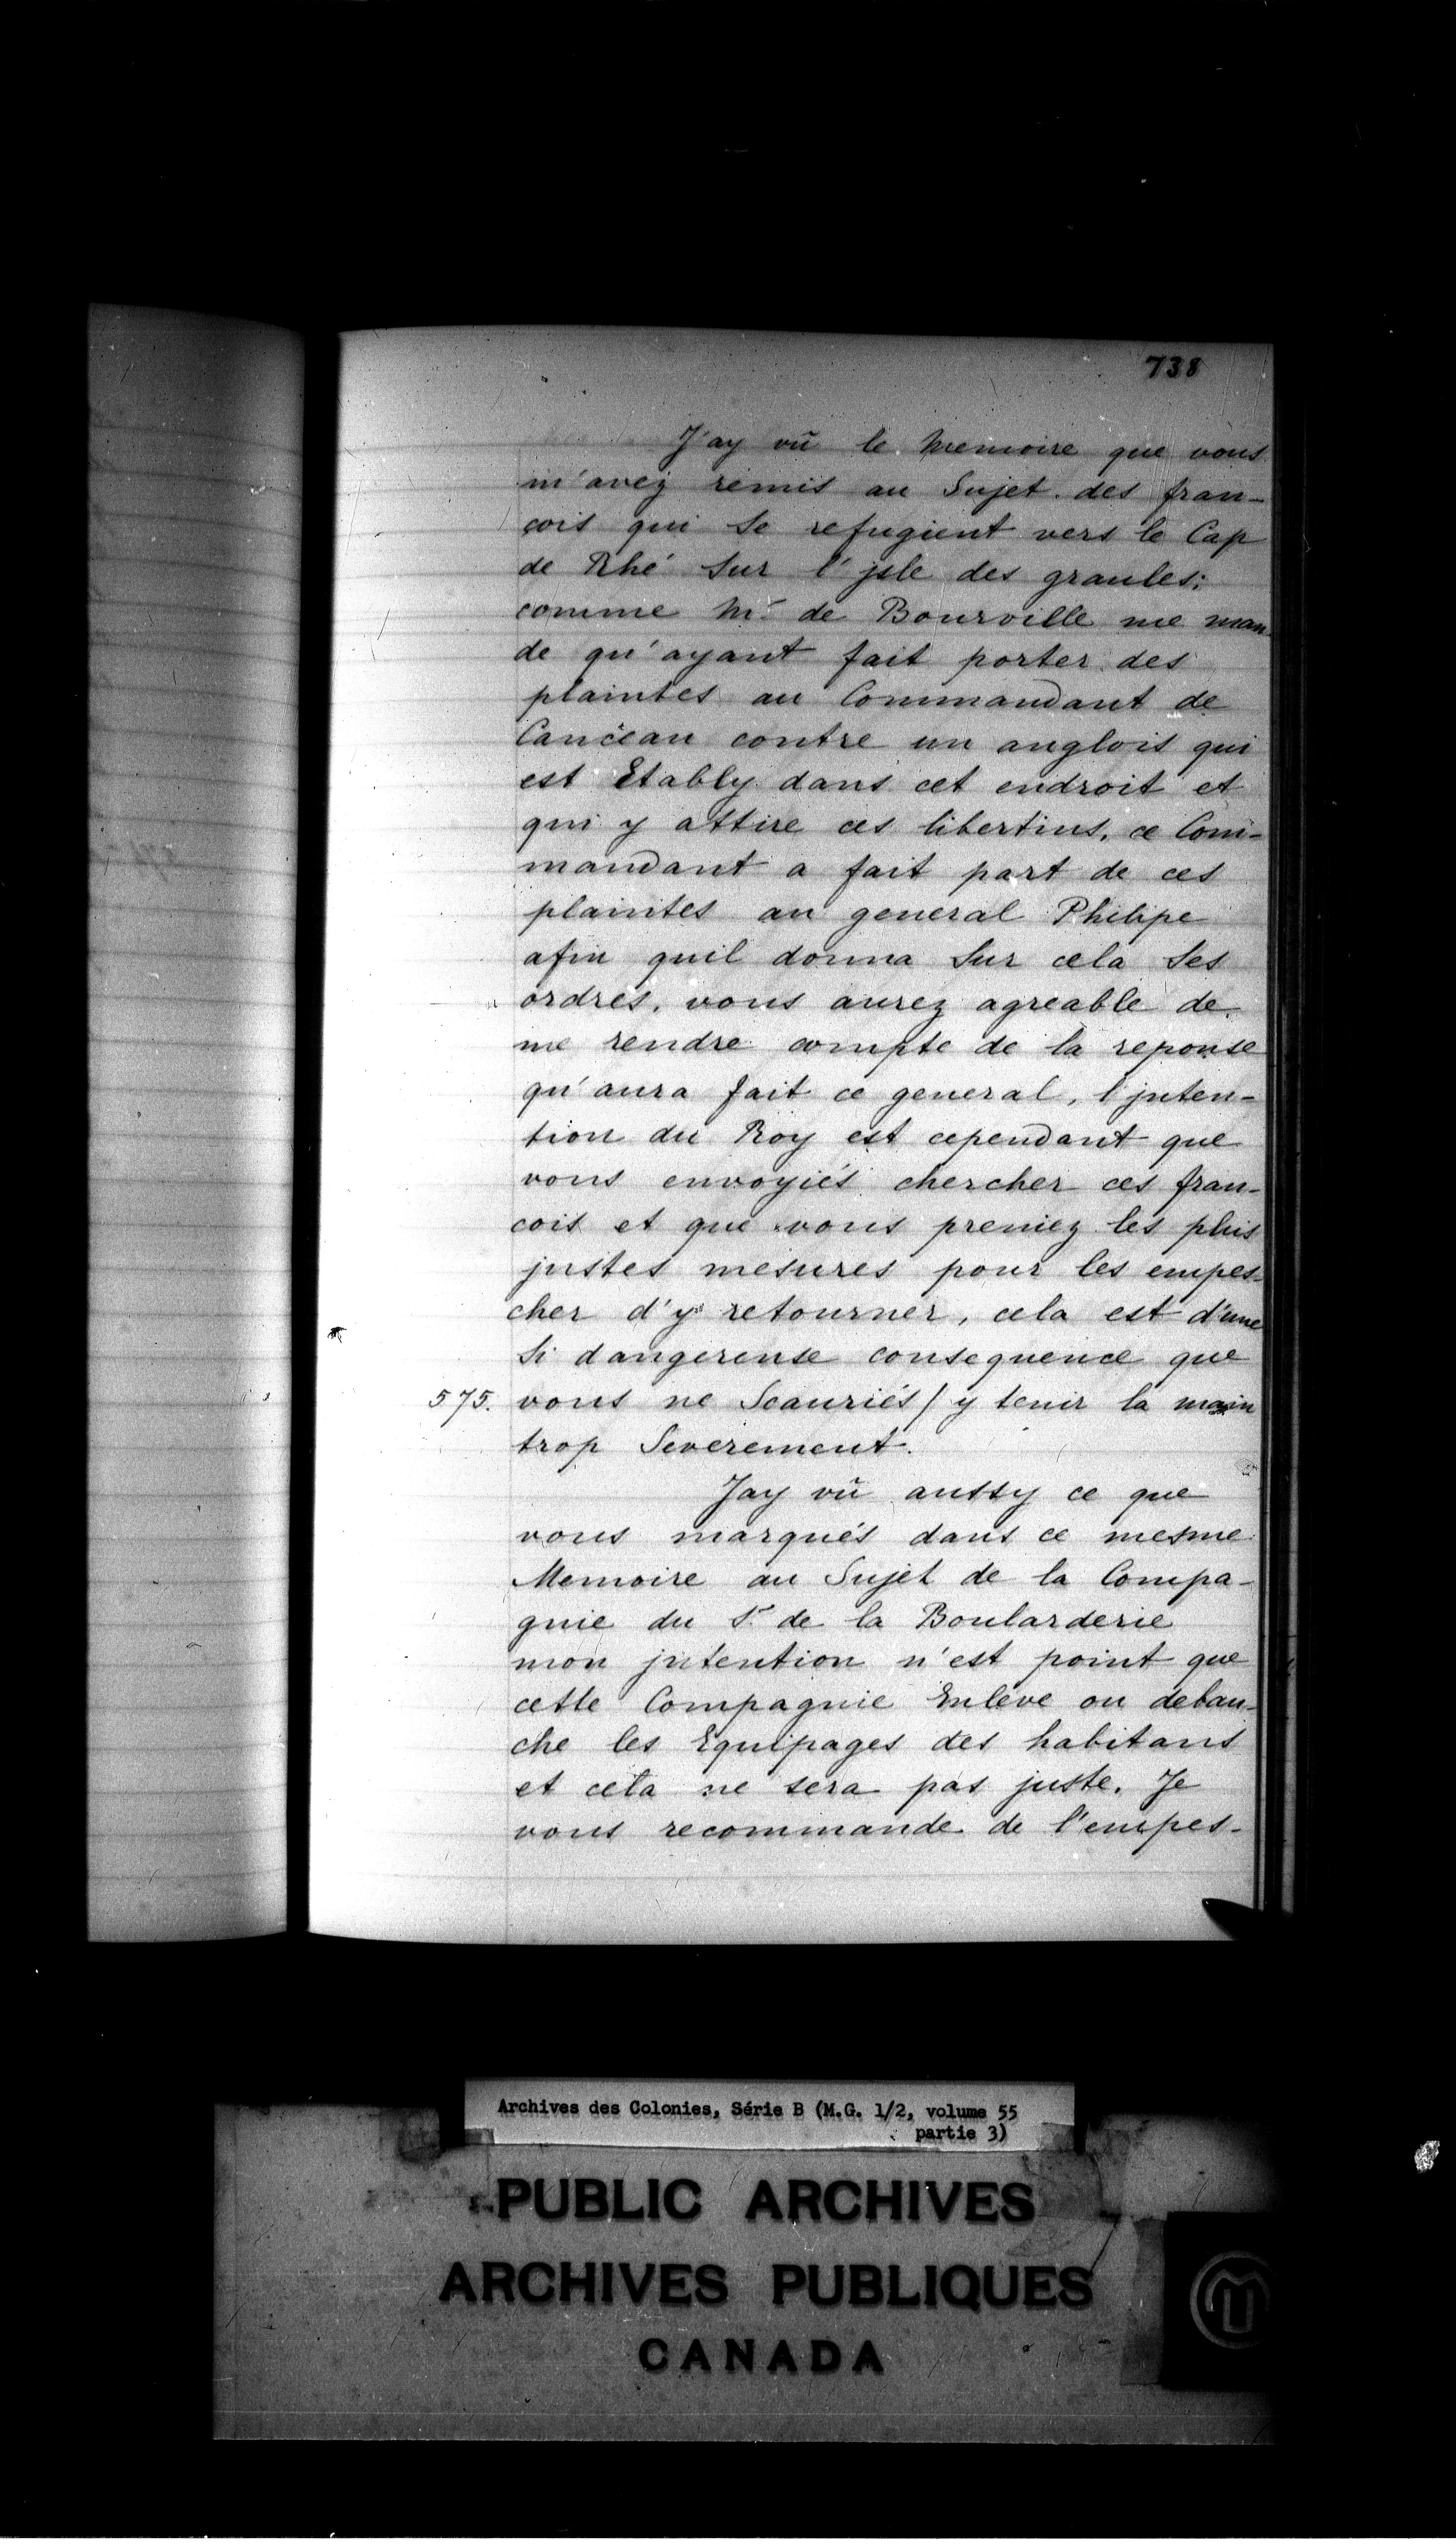 738
J'ay vû le Memoire que vous
m'avez remis au Sujet des fran-
çois qui Se refugient vers le Cap
de Rhé Sur l'jsle des graules;
comme Mr de Bourville me man-
de qu'ayant fait porter des
plaintes au Commandant de
Canceau contre un anglois qui
est Etably dans cet endroit et
qui y attire ces libertins, ce Com-
mandant a fait part de ces
plaintes au general Philipe
afin quil donna Sur cela Ses
ordres, vous aurez agreable de
me rendre compte de la reponse
qu'aura fait ce general, l'jnten-
tion du Roy est cependant que
vous envoyiés chercher ces fran-
cois et que vous preniez les plus
justes mesures pour les empes-
cher d'y retourner, cela est d'une
Si dangereuse consequence que
575. vous ne Scauriés / y tenir la main
trop Severement.
Jay vû aussy ce que
vous marqués dans ce mesme
Memoire au Sujet de la Compa-
gnie du Sr de la Boularderie
mon jntention n'est point que
cette Compagnie Enleve ou debau-
che les Equipages des habitans
et cela ne sera pas juste. Je
vous recommande de l'empes-
Archives des Colonies, Série B (M.G. 1/2, volume 55
partie 3)
PUBLIC ARCHIVES
ARCHIVES PUBLIQUES
CANADA